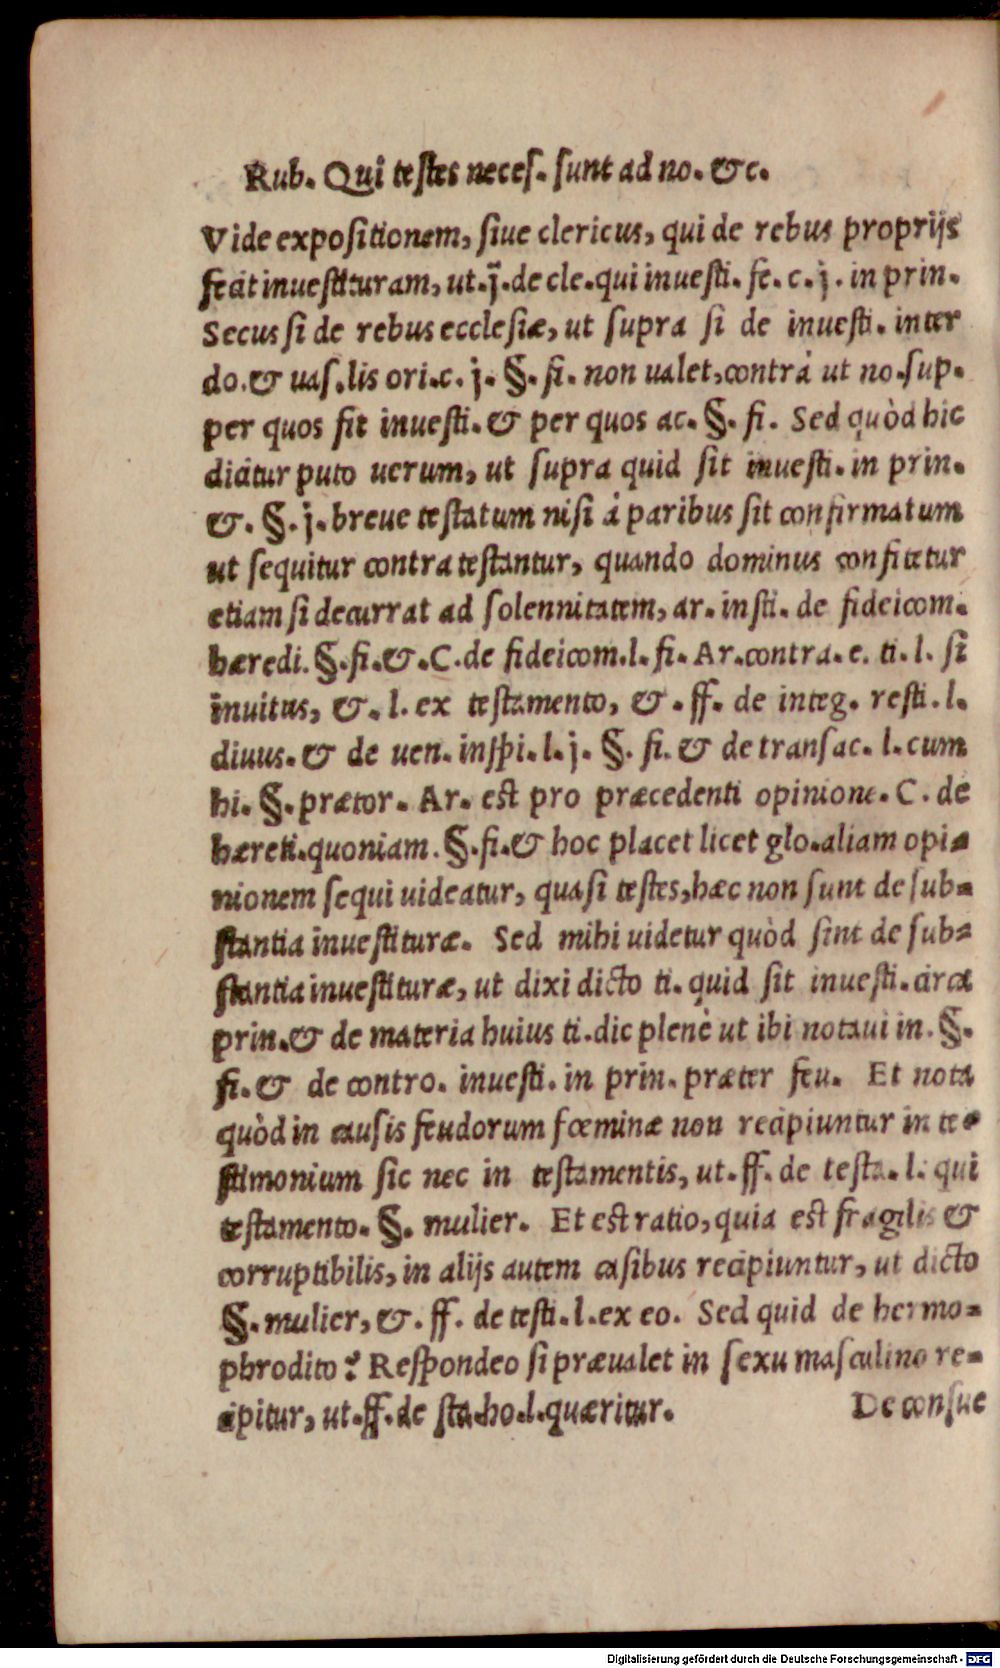 Rub. Qui testes neces. sunt ad no. &c.
Vide expositionem, siue clericus, qui de rebus proprijs
fecit inuestituram, ut.j̄.de cle.qui inuesti. fe. c. j. in prin.
Secus si de rebus ecclesiæ, ut supra si de inuesti. inter
do.& uas.lis ori.c. j. §. fi. non ualet,contrà ut no.sup.
per quos fit inuesti.& per quos ac. §. fi. Sed quòd hic
dicitur puto uerum, ut supra quid sit inuesti. in prin.
&. §. j. breue testatum nisi à paribus sit confirmatum
ut sequitur contra testantur, quando dominus confitetur
etiam si decurrat ad solennitatem, ar. insti. de fideicom.
hæredi. §.fi.&.C.de fideicom.l. fi. Ar.contra. e. ti. l. si
inuitus, &. l. ex testamento, & . ff. de integ. resti. l.
diuus.& de uen. inspi. l. j. §. fi. & de transac. l. cum
hi. §. prætor. Ar. est pro præcedenti opinione. C. de
hæreti.quoniam. §.fi.& hoc placet licet glo.aliam opi-
nionem sequi uideatur, quasi testes,hæc non sunt de sub-
stantia inuestituræ. Sed mihi uidetur quòd sint de sub-
stantia inuestituræ, ut dixi dicto ti. quid sit inuesti. circa
prin.& de materia huius ti.dic plenè ut ibi notaui in. §.
fi. & de contro. inuesti. in prin. præter feu. Et nota
quòd in causis feudorum fœminæ non recipiuntur in te-
stimonium sic nec in testamentis, ut. ff. de testa. l. qui
testamento. §. mulier. Et est ratio, quia est fragilis &
corruptibilis, in alijs autem casibus recipiuntur, ut dicto
§. mulier, &. ff. de testi. l. ex eo. Sed quid de hermo-
phrodito? Respondeo si præualet in sexu masculino re-
cipitur, ut.ff.de sta.ho.l.quæritur.
De consue
Digitalisierung gefördert durch die Deutsche Forschungsgemeinschaft - DFG